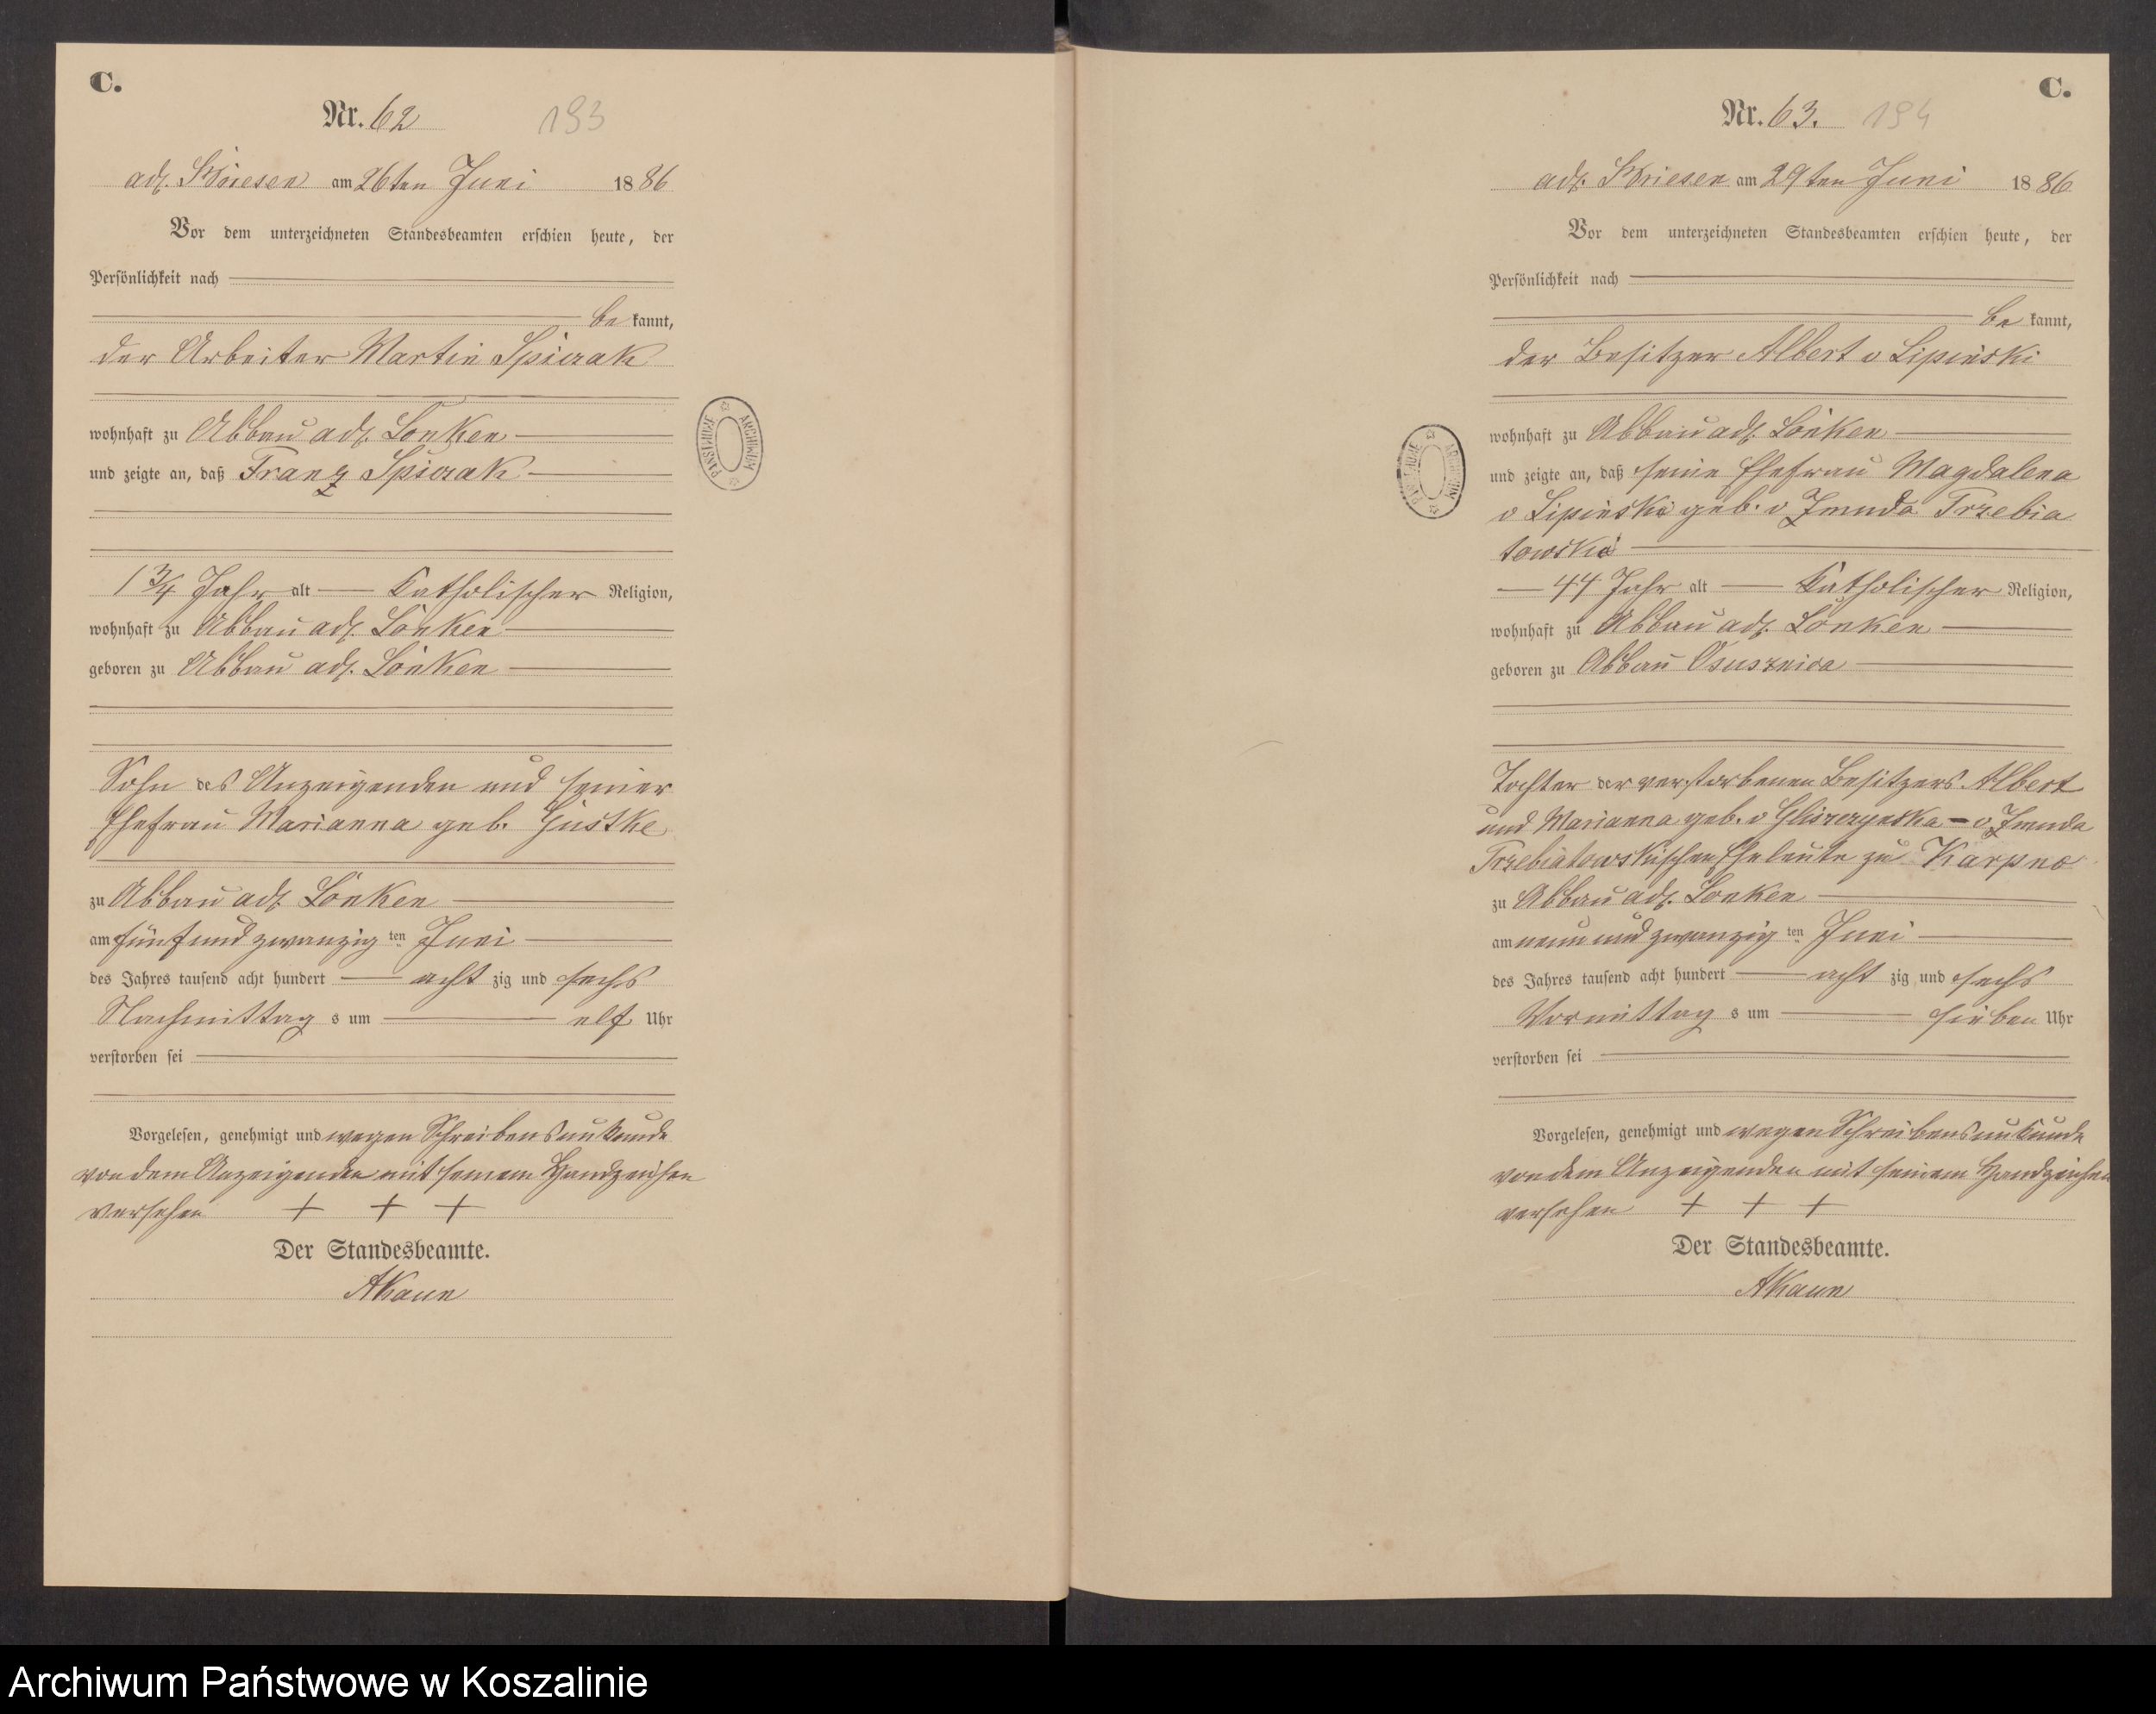 C.
Nr. 62
193
adl. Briesen am 26ten Juni 1886
Vor dem unterzeichneten Standesbeamten erschien heute, der
Persönlichkeit nach
be kannt,
der Arbeiter Martin Spiczak
wohnhaft zu Abbau adl. Lonken
und zeigte an, daß Franz Spiczak
1 3/4 Jahr alt Katholischer Religion,
wohnhaft zu Abbau adl. Lonken
geboren zu Abbau adl. Lonken
Sohn des Anzeigenden und seiner
Ehefrau Marianna geb. Gustke
zu Abbau adl. Lonken
am fünf und zwanzig ten Juni
des Jahres tausend acht hundert acht zig und sechs
Nachmittag s um elf Uhr
verstorben sei
Vorgelesen, genehmigt und wegen Schreibensunkunde
von dem Anzeigenden mit seinem Handzeichen
versehen + + +
Der Standesbeamte.
AKaun
PAŃSTWOWE ARCHIWUM
C.
Nr. 63.
194
adl. Briesen am 29ten Juni 1886
Vor dem unterzeichneten Standesbeamten erschien heute, der
Persönlichkeit nach
be kannt,
der Besitzer Albert v Lipinski
wohnhaft zu Abbau adl. Lonken
und zeigte an, daß seine Ehefrau Magdalena
v Lipinski geb. v Zmuda Trzebia
towski
44 Jahr alt Katholischer Religion,
wohnhaft zu Abbau adl. Lonken
geboren zu Abbau Osusznica
Tochter der verstorbenen Besitzers Albert
und Marianna geb. v Gliszczynska - v Zmuda
Trzebiatowskischen Eheleute zu Karpno
zu Abbau adl. Lonken
am neun und zwanzig ten Juni
des Jahres tausend acht hundert acht zig und sechs
Vormittag s um sieben Uhr
verstorben sei
Vorgelesen, genehmigt und wegen Schreibensunkunde
von dem Anzeigenden mit seinem Handzeichen
versehen + + +
Der Standesbeamte.
AKaun
PAŃSTWOWE ARCHIWUM
Archiwum Państwowe w Koszalinie